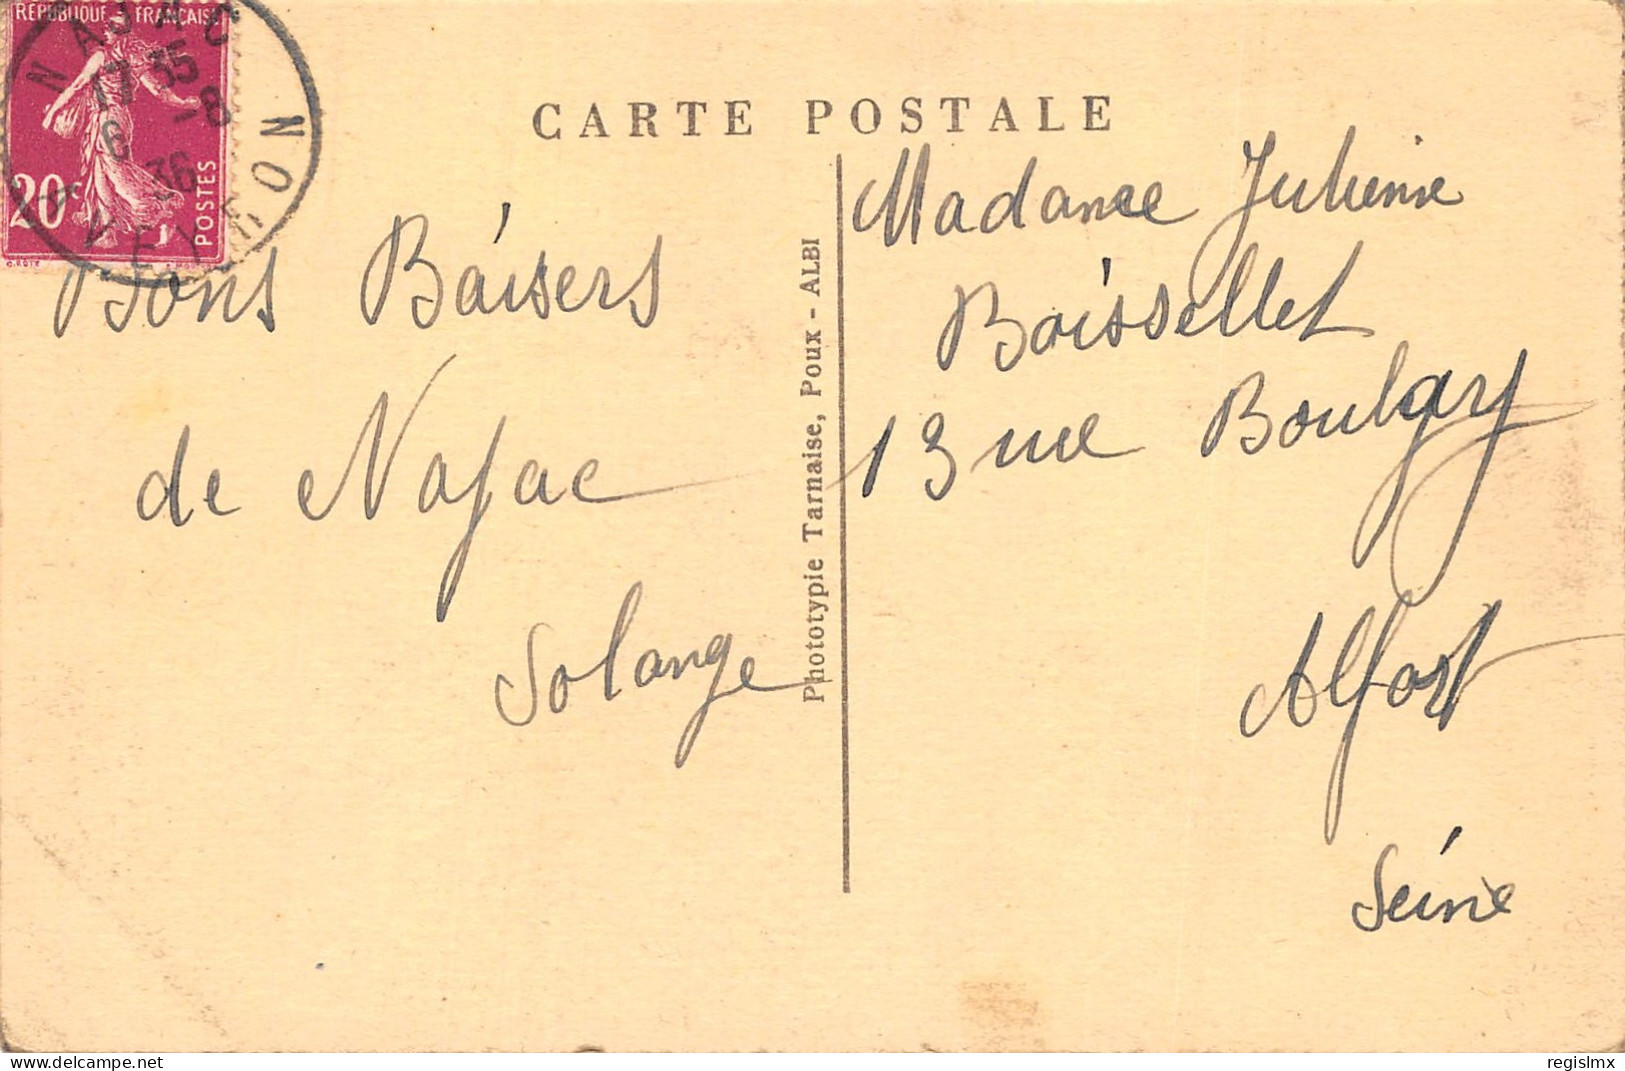 REPUBLIQUE FRANÇAISE
20c
POSTES
NAJAC
17 35
6 -8
36
AVEYRON
CARTE POSTALE
Bons Baisers
de Najac
Solange
Phototypie Tarnaise, Poux - ALBI
Madame Julienne
Boissellet
13 rue Boulgary
Alfort
Seine
www.delcampe.net
regislmx